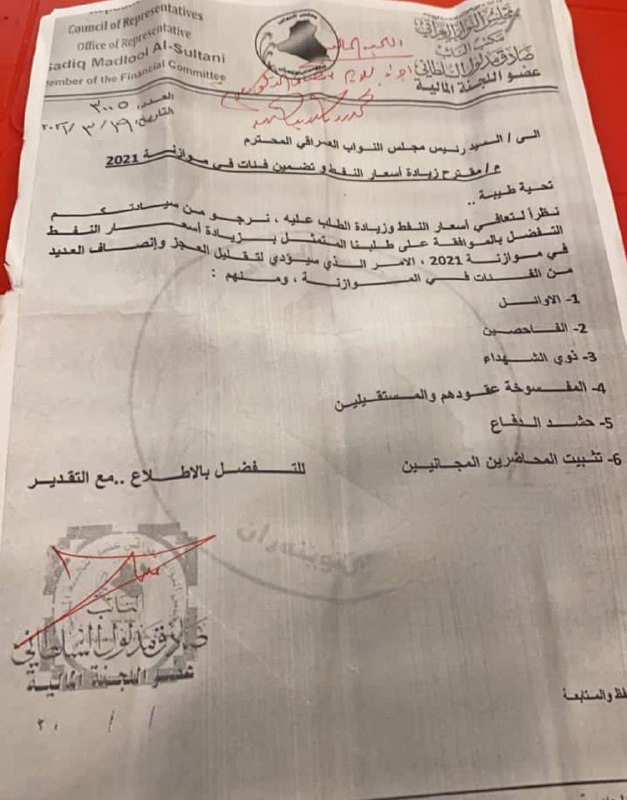 Council of Representatives
Office of Representative
Sadiq Madlool Al-Sultani
Member of the Financial Committee
مجلس النواب العراقي
مكتب النائب
صادق مدلول السلطاني
عضو اللجنة المالية
العدد: ٣٠٠٥
التاريخ: ٢٠٢١/٣/١٩
اللجنة المالية
الى / السيد رئيس مجلس النواب العراقي المحترم
م / مقترح زيادة أسعار النفط و تضمين فئات في موازنة 2021
تحية طيبة ..
نظراً لتعافي أسعار النفط وزيادة الطلب عليه ، نرجو من سيادتكم
التفضل بالموافقة على طلبنا المتمثل بزيادة أسعار النفط
في موازنة 2021 ، الامر الذي سيؤدي لتقليل العجز وإنصاف العديد
من الفئات في الموازنة ، ومنهم :
1- الاوائل
2- الفاحصين
3- ذوي الشهداء
4- المفسوخة عقودهم والمستقيلين
5- حشد الدفاع
6- تثبيت المحاضرين المجانيين
للتفضل بالاطلاع ..مع التقدير
النائب
صادق مدلول السلطاني
عضو اللجنة المالية
٢٠ / /
والمتابعة